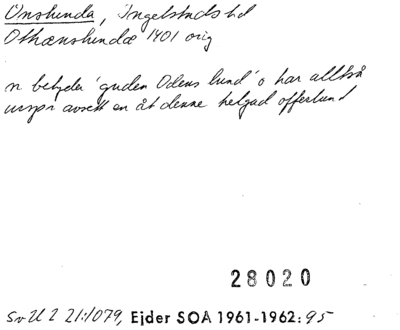 Onslunda, Ingelstads hd
Othænslundæ 1401 orig
n betyder 'guden Odens lund' o har alltså
urspr avsett en åt denne helgad offerlund
28020
SvU 2 21:1079, Ejder SOÅ 1961-1962:95